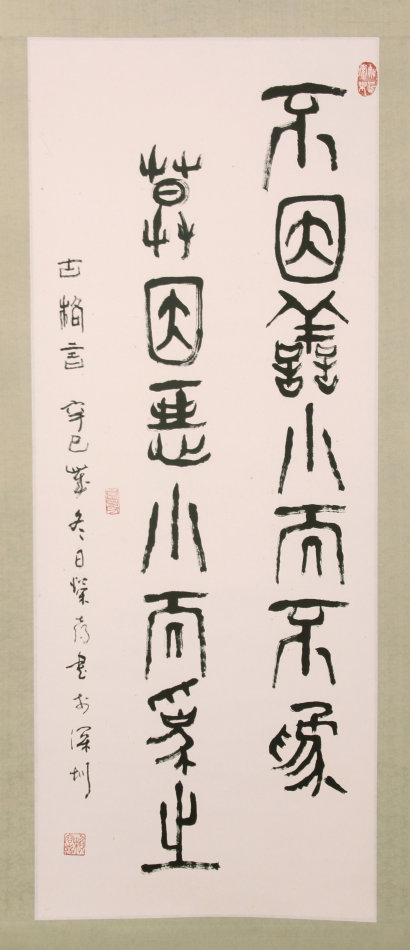 不因善小而不為
莫因惡小而為之
古格言 辛巳歲冬日榮書於深圳